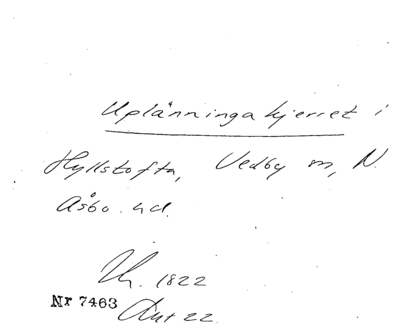 Uplänningakjerret i
Hyllstofta, Vedby sn, N.
Åsbo hd.
1822
Nr 7463
22